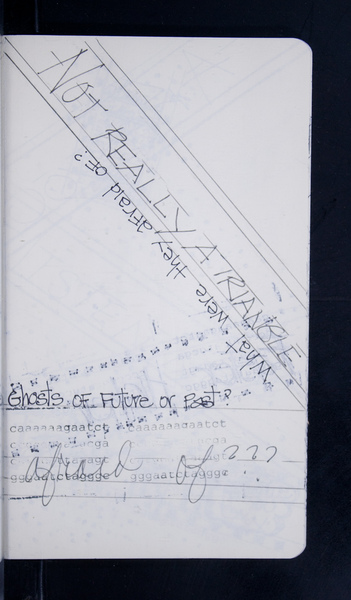 NOT REALLY A TRIANGLE
What were they afraid of?
Ghosts of Future or Past?
caaaaaagaatct caaaaaagaatct
afraid of ???
gggaatctaggge gggaatctaggge